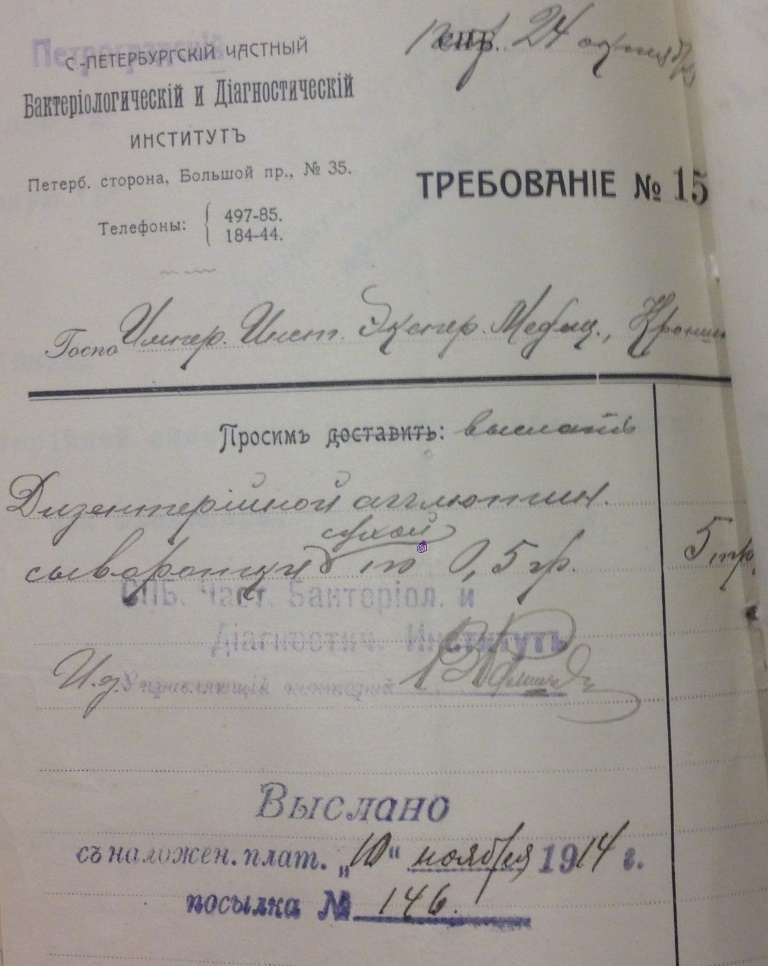 Петроградскій
С-ПЕТЕРБУРГСКІЙ ЧАСТНЫЙ
Бактеріологическій и Діагностическій
ИНСТИТУТЪ
Петерб. сторона, Большой пр., № 35.
Телефоны: { 497-85.
184-44.
СПБ. 24 октября
ТРЕБОВАНІЕ № 15
Госпо Импер. Инст. Экспер. Медиц.,
Просимъ доставить: выслать
Дизентерійной агглютин.
сухой
сыворотки по 0,5 гр. 5
СПБ. Част. Бактеріол. и
Діагностич. Институтъ
И.д. Управляющій конторой
Выслано
съ наложен. плат. „10" ноября 1914 г.
посылка № 146.